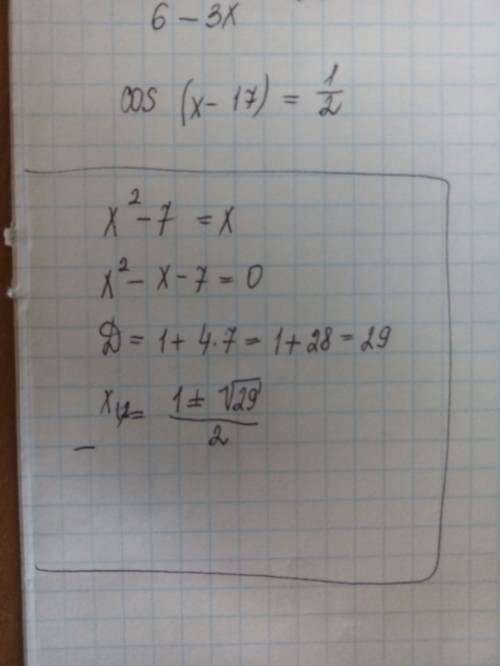 6 - 3x
cos (x - 17) = 1/2
x² - 7 = x
x² - x - 7 = 0
D = 1 + 4·7 = 1 + 28 = 29
x₁,₂ = (1 ± √29)/2